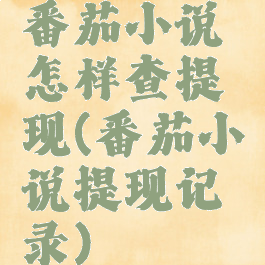 番茄小说
怎样查提
现(番茄小
说提现记
录)